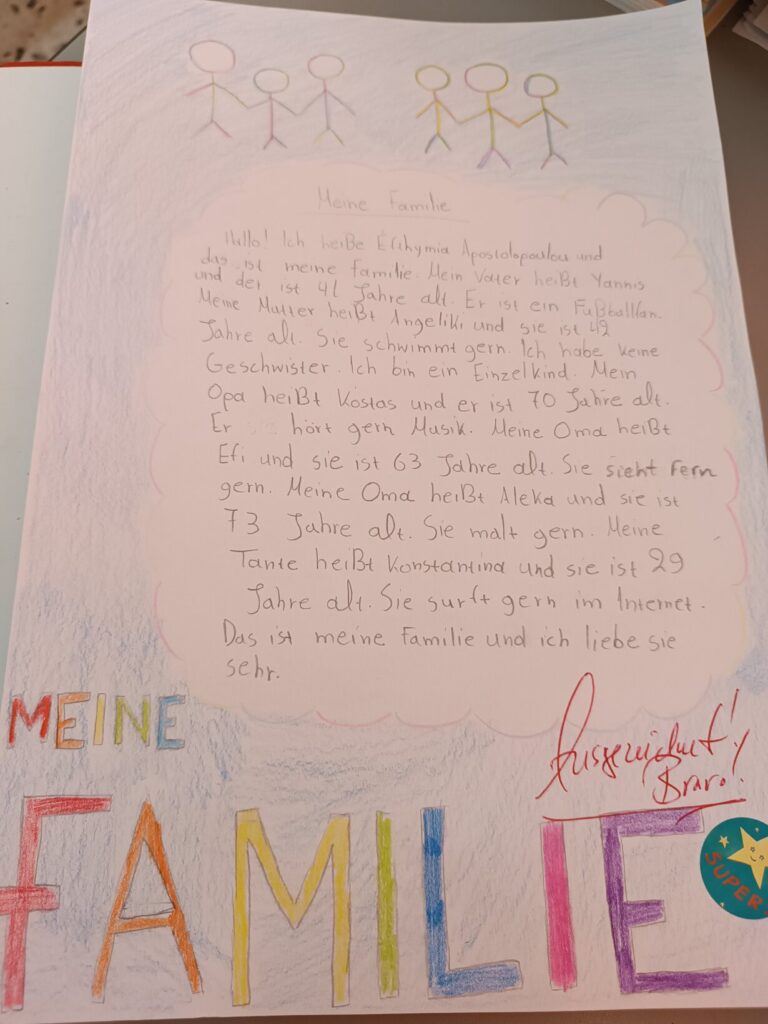 Meine Familie
Hallo! Ich heiße Efthymia Apostolopoulou und
das ist meine Familie. Mein Vater heißt Yannis
und der ist 41 Jahre alt. Er ist ein Fußballfan.
Meine Mutter heißt Angeliki und sie ist 42
Jahre alt. Sie schwimmt gern. Ich habe keine
Geschwister. Ich bin ein Einzelkind. Mein
Opa heißt Kostas und er ist 70 Jahre alt.
Er hört gern Musik. Meine Oma heißt
Efi und sie ist 63 Jahre alt. Sie sieht fern
gern. Meine Oma heißt Aleka und sie ist
73 Jahre alt. Sie malt gern. Meine
Tante heißt Konstantina und sie ist 29
Jahre alt. Sie surft gern im Internet.
Das ist meine Familie und ich liebe sie
sehr.
MEINE
Ausgezeichnet!
Bravo!
FAMILIE
SUPER